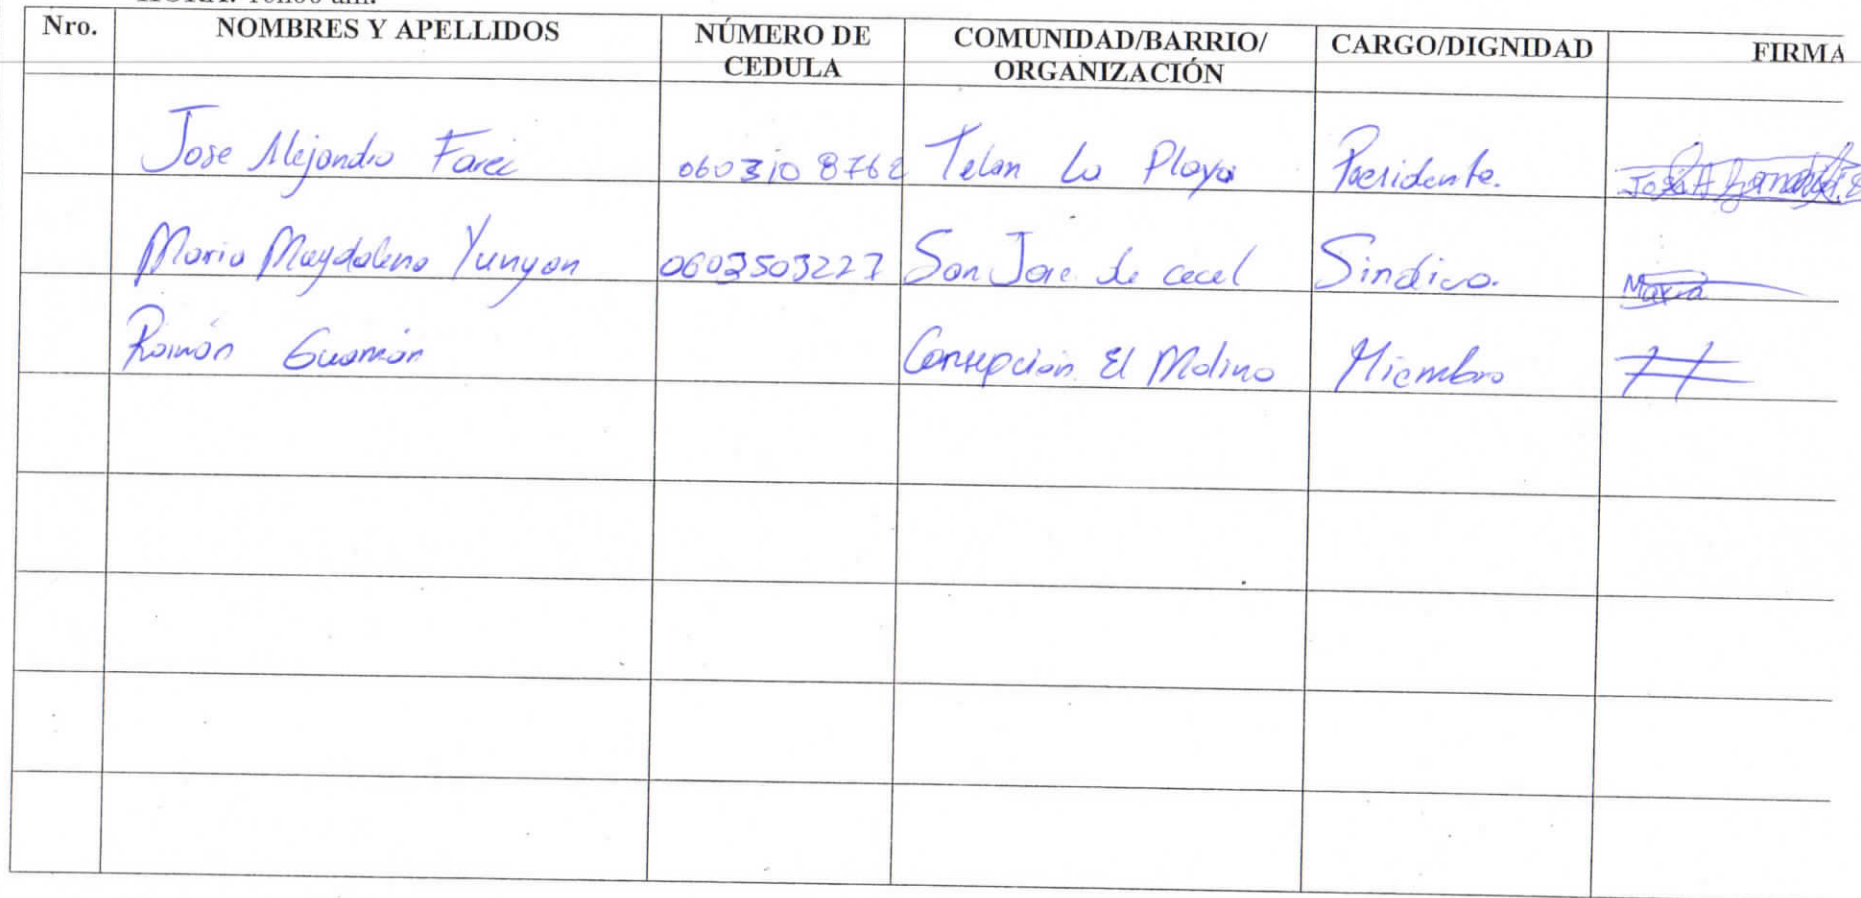 Nro. NOMBRES Y APELLIDOS NÚMERO DE CEDULA COMUNIDAD/BARRIO/ ORGANIZACIÓN CARGO/DIGNIDAD FIRMA
Jose Alejandro 060310 8762 Telan La Playa Presidente.
Maria Magdalena Yungan 0603503227 San Jose de cecel Sindica. Maria
Ramón Guamán Consepción El Molino Miembro